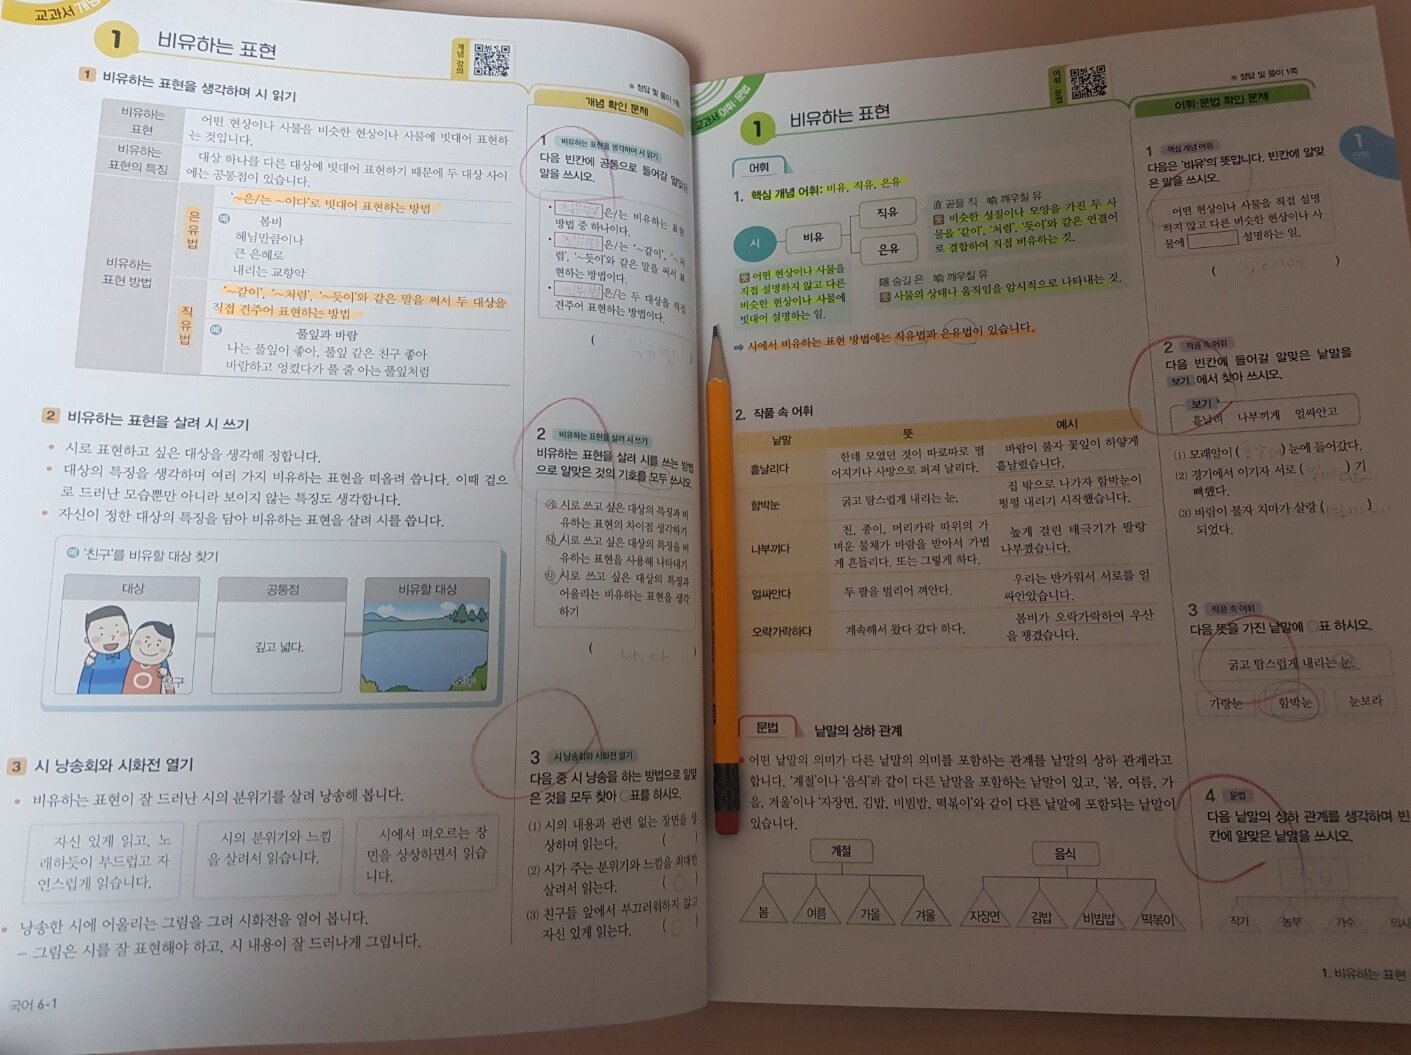 교과서 개념
1 비유하는 표현
개념 강의
1 비유하는 표현을 생각하며 시 읽기
비유하는 표현
어떤 현상이나 사물을 비슷한 현상이나 사물에 빗대어 표현하
는 것입니다.
비유하는 표현의 특징
대상 하나를 다른 대상에 빗대어 표현하기 때문에 두 대상 사이
에는 공통점이 있습니다.
비유하는 표현 방법
은유법
'~은/는 ~이다'로 빗대어 표현하는 방법
예 봄비
해님만큼이나
큰 은혜로
내리는 교향악
직유법
'~같이', '~처럼', '~듯이'와 같은 말을 써서 두 대상을
직접 견주어 표현하는 방법
예 풀잎과 바람
나는 풀잎이 좋아, 풀잎 같은 친구 좋아
바람하고 엉켰다가 풀 줄 아는 풀잎처럼
2 비유하는 표현을 살려 시 쓰기
• 시로 표현하고 싶은 대상을 생각해 정합니다.
• 대상의 특징을 생각하며 여러 가지 비유하는 표현을 떠올려 씁니다. 이때 겉으
로 드러난 모습뿐만 아니라 보이지 않는 특징도 생각합니다.
• 자신이 정한 대상의 특징을 담아 비유하는 표현을 살려 시를 씁니다.
예 '친구'를 비유할 대상 찾기
대상
공통점
비유할 대상
친구
깊고 넓다.
호수
3 시 낭송회와 시화전 열기
• 비유하는 표현이 잘 드러난 시의 분위기를 살려 낭송해 봅니다.
자신 있게 읽고, 노
래하듯이 부드럽고 자
연스럽게 읽습니다.
시의 분위기와 느낌
을 살려서 읽습니다.
시에서 떠오르는 장
면을 상상하면서 읽습니
다.
• 낭송한 시에 어울리는 그림을 그려 시화전을 열어 봅니다.
– 그림은 시를 잘 표현해야 하고, 시 내용이 잘 드러나게 그립니다.
국어 6-1
※ 정답 및 풀이 1쪽
개념 확인 문제
1 비유하는 표현을 생각하며 시 읽기
다음 빈칸에 공통으로 들어갈 알맞은
말을 쓰시오.
• 직유법은/는 비유하는 표현
방법 중 하나이다.
• 직유법은/는 '~같이', '~처
럼', '~듯이'와 같은 말을 써서 표
현하는 방법이다.
• 직유법은/는 두 대상을 직접
견주어 표현하는 방법이다.
( 직유법 )
2 비유하는 표현을 살려 시 쓰기
비유하는 표현을 살려 시를 쓰는 방법
으로 알맞은 것의 기호를 모두 쓰시오.
㉮ 시로 쓰고 싶은 대상의 특징과 비
유하는 표현의 차이점 생각하기
㉯ 시로 쓰고 싶은 대상의 특징을 비
유하는 표현을 사용해 나타내기
㉰ 시로 쓰고 싶은 대상의 특징과
어울리는 비유하는 표현을 생각
하기
( 나, 다 )
3 시 낭송회와 시화전 열기
다음 중 시 낭송을 하는 방법으로 알맞
은 것을 모두 찾아 ○표를 하시오.
(1) 시의 내용과 관련 없는 장면을 상
상하며 읽는다. ( )
(2) 시가 주는 분위기와 느낌을 최대한
살려서 읽는다. ( ○ )
(3) 친구들 앞에서 부끄러워하지 않고
자신 있게 읽는다. ( ○ )
교과서 어휘·문법
1 비유하는 표현
어휘·문법
어휘
1. 핵심 개념 어휘: 비유, 직유, 은유
시
비유
직유
은유
直 곧을 직 喩 깨우칠 유
뜻 비슷한 성질이나 모양을 가진 두 사
물을 '같이', '처럼', '듯이'와 같은 연결어
로 결합하여 직접 비유하는 것.
뜻 어떤 현상이나 사물을
직접 설명하지 않고 다른
비슷한 현상이나 사물에
빗대어 설명하는 일.
隱 숨길 은 喩 깨우칠 유
뜻 사물의 상태나 움직임을 암시적으로 나타내는 것.
⇒ 시에서 비유하는 표현 방법에는 직유법과 은유법이 있습니다.
2. 작품 속 어휘
낱말 뜻 예시
흩날리다
한데 모였던 것이 따로따로 떨
어지거나 사방으로 퍼져 날리다.
바람이 불자 꽃잎이 하얗게
흩날렸습니다.
함박눈
굵고 탐스럽게 내리는 눈.
집 밖으로 나가자 함박눈이
펑펑 내리기 시작했습니다.
나부끼다
천, 종이, 머리카락 따위의 가
벼운 물체가 바람을 받아서 가볍
게 흔들리다. 또는 그렇게 하다.
높게 걸린 태극기가 팔랑
나부꼈습니다.
얼싸안다
두 팔을 벌리어 껴안다.
우리는 반가워서 서로를 얼
싸안았습니다.
오락가락하다
계속해서 왔다 갔다 하다.
봄비가 오락가락하여 우산
을 챙겼습니다.
문법
낱말의 상하 관계
• 어떤 낱말의 의미가 다른 낱말의 의미를 포함하는 관계를 낱말의 상하 관계라고
합니다. '계절'이나 '음식'과 같이 다른 낱말을 포함하는 낱말이 있고, '봄, 여름, 가
을, 겨울'이나 '자장면, 김밥, 비빔밥, 떡볶이'와 같이 다른 낱말에 포함되는 낱말이
있습니다.
계절
봄 여름 가을 겨울
음식
자장면 김밥 비빔밥 떡볶이
※ 정답 및 풀이 1쪽
어휘·문법 확인 문제
1
단원
1 핵심 개념 어휘
다음은 '비유'의 뜻입니다. 빈칸에 알맞
은 말을 쓰시오.
어떤 현상이나 사물을 직접 설명
하지 않고 다른 비슷한 현상이나 사
물에 설명하는 일.
2 작품 속 어휘
다음 빈칸에 들어갈 알맞은 낱말을
보기 에서 찾아 쓰시오.
보기
흩날려 나부끼게 얼싸안고
(1) 모래알이 ( 흩날려 ) 눈에 들어갔다.
(2) 경기에서 이기자 서로 ( 얼싸안고 ) 기
뻐했다.
(3) 바람이 불자 치마가 살랑 ( 나부끼게 )
되었다.
3 작품 속 어휘
다음 뜻을 가진 낱말에 ○표 하시오.
굵고 탐스럽게 내리는 눈.
가랑눈 함박눈 눈보라
4 문법
다음 낱말의 상하 관계를 생각하며 빈
칸에 알맞은 낱말을 쓰시오.
작가 농부 가수 의사
1. 비유하는 표현